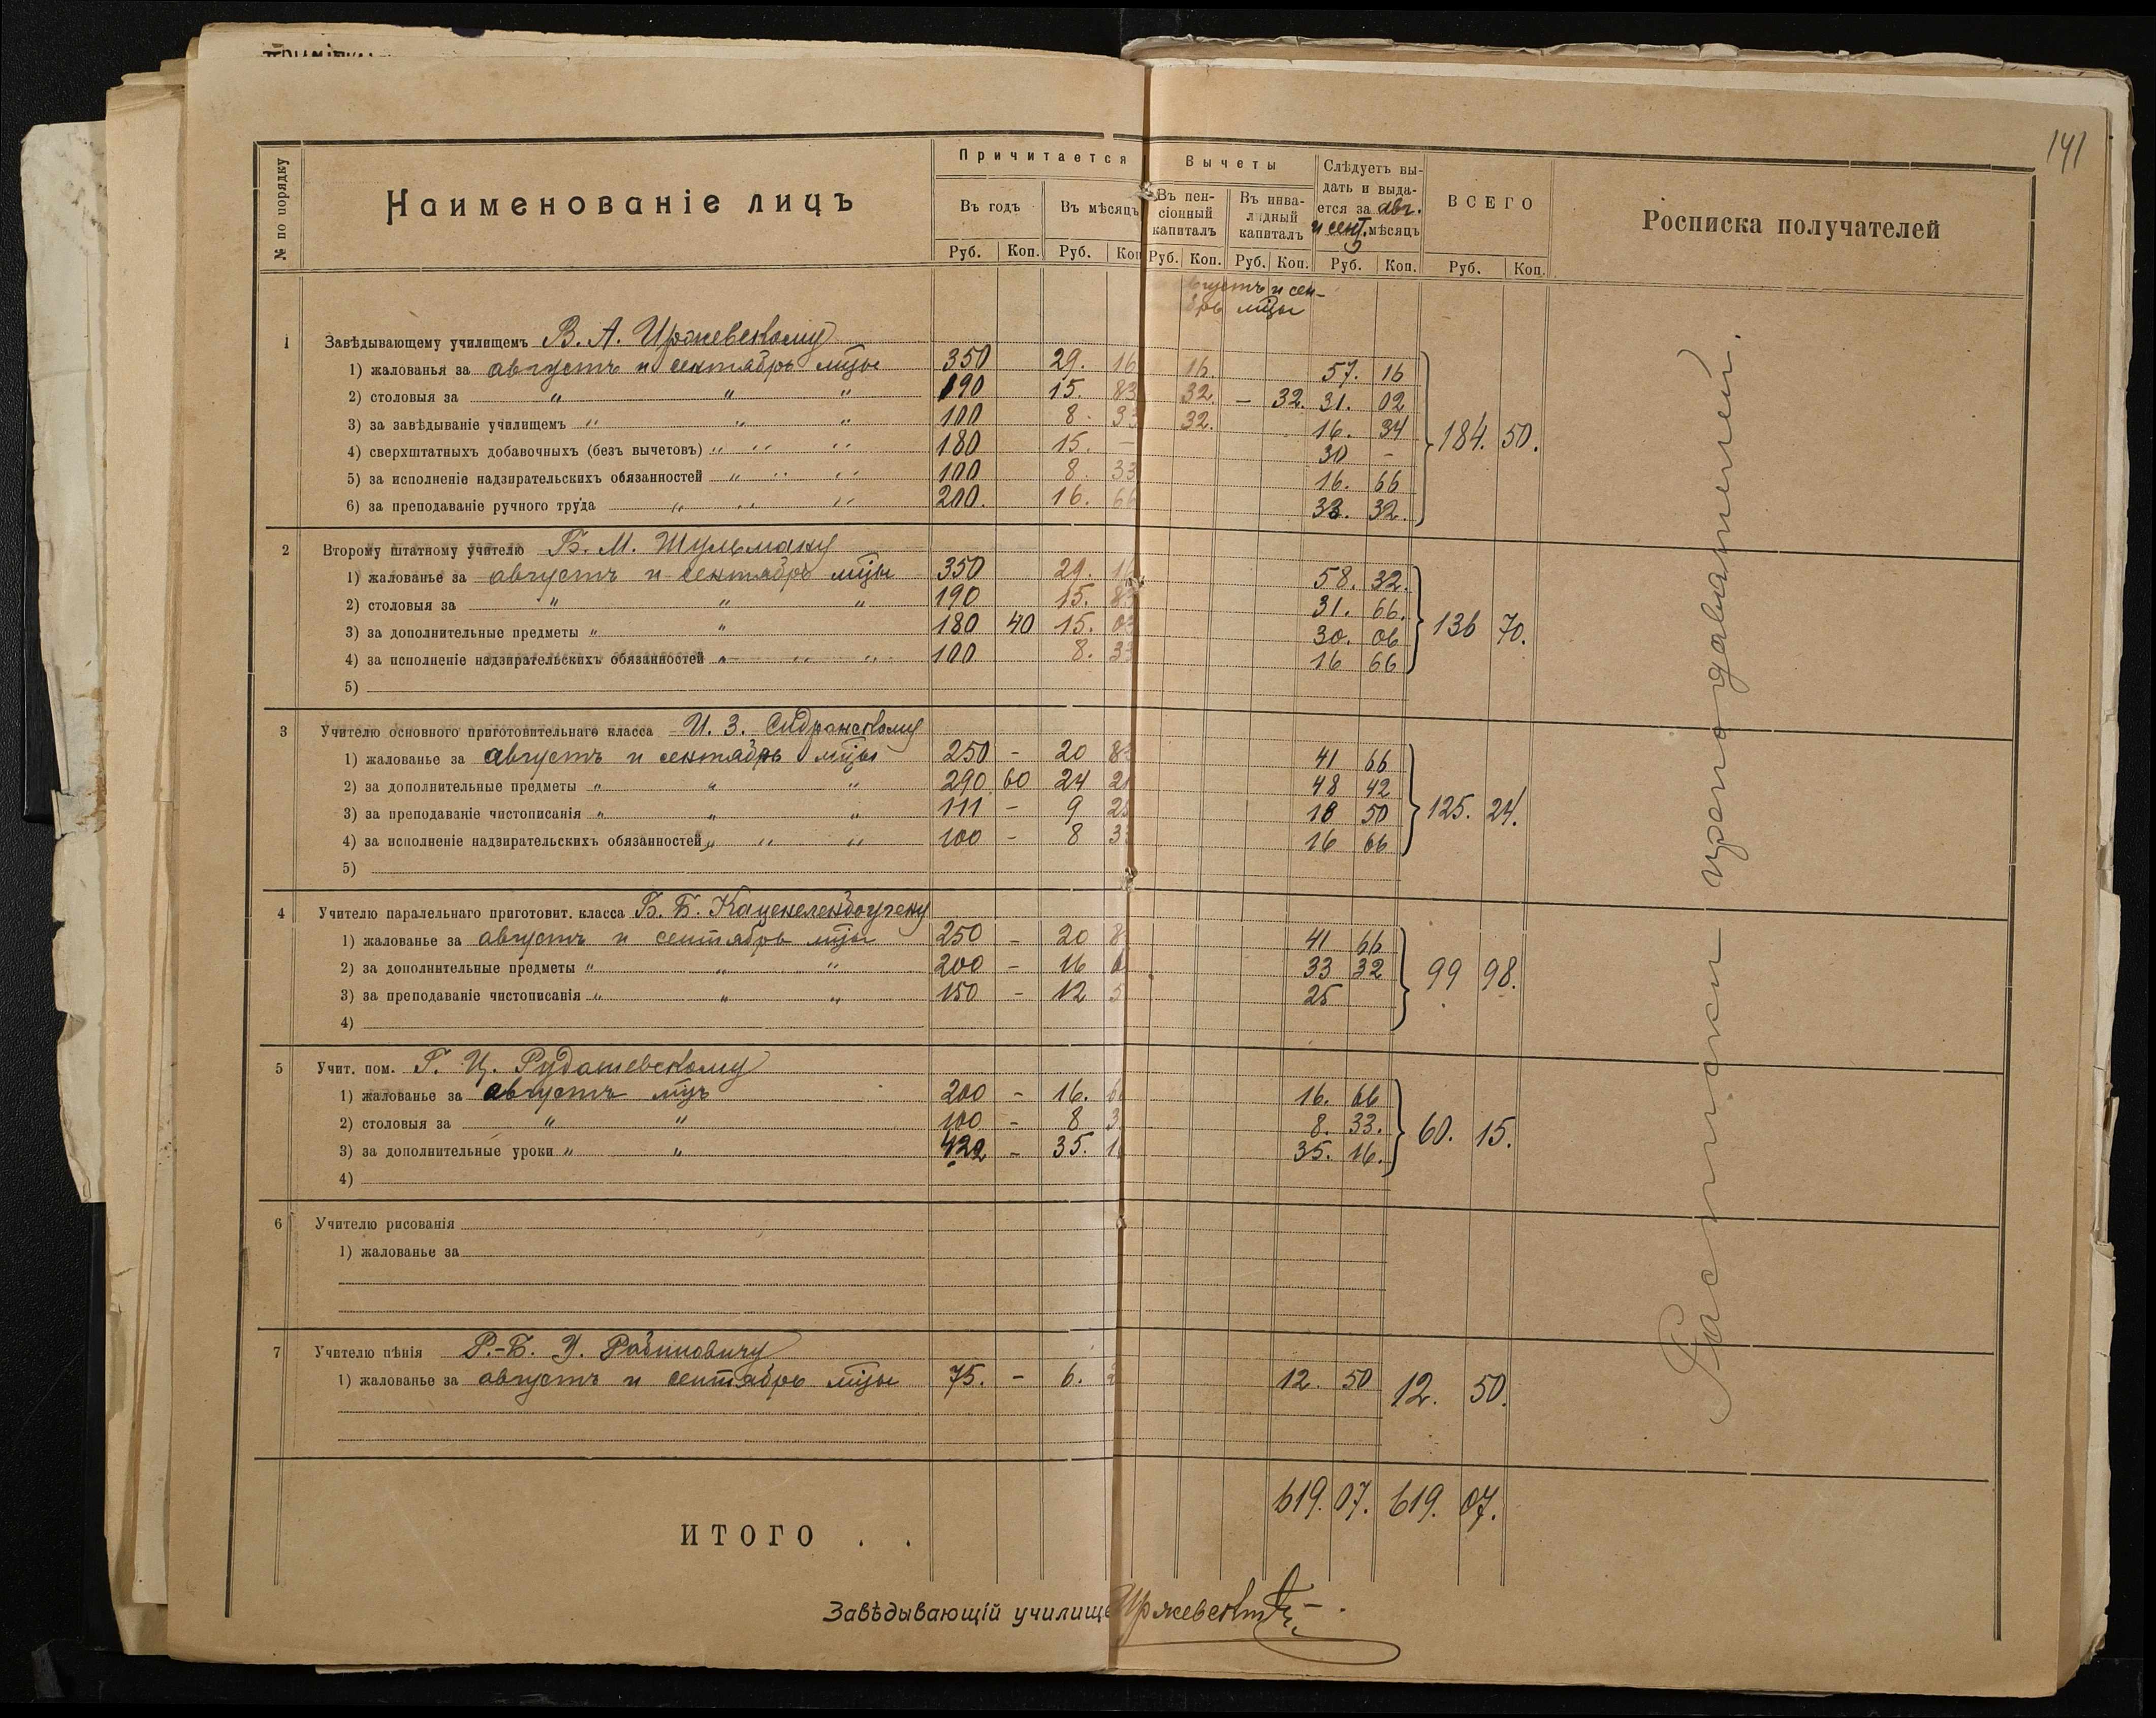 141
№ по порядку
Наименованіе лицъ
Причитается
Въ годъ
Въ мѣсяцъ
Руб. Коп. Руб. Коп
Вычеты
Въ пен-
сіонный
капиталъ
Въ инва-
лидный
капиталъ
Руб. Коп. Руб. Коп.
Слѣдуетъ вы-
дать и выда-
ется за авг.
и сент. мѣсяцъ
Руб. Коп.
ВСЕГО
Руб. Коп.
Росписка получателей
густъ и сен-
брь мцы
1 Завѣдывающему училищемъ В. А. Иржевскому
1) жалованья за августъ и сентябрь мцы 350 29. 16 16. 57. 16
2) столовыя за " " " 190 15. 83 32. — 32. 31. 02
3) за завѣдываніе училищемъ " " " 100 8. 33 32. 16. 34
184. 50.
4) сверхштатныхъ добавочныхъ (безъ вычетовъ) " " " 180 15. — 30 –
5) за исполненіе надзирательскихъ обязанностей " " " 100 8. 33 16. 66
6) за преподаваніе ручного труда " " " 200. 16. 66 33. 32.
2 Второму штатному учителю Б. М. Шульману
1) жалованье за августъ и сентябрь мцы 350 29. 16 58. 32.
2) столовыя за " " " 190 15. 83 31. 66.
3) за дополнительные предметы " " 180 40 15. 03 30. 06 136 70.
4) за исполненіе надзирательскихъ обязанностей " " " 100 8. 33 16 66
5)
3 Учителю основного приготовительнаго класса И. З. Сидранскому
1) жалованье за августъ и сентябрь мцы 250 – 20 83 41 66
2) за дополнительные предметы " " " 290 60 24 21 48 42
3) за преподаваніе чистописанія " " " 111 – 9 25 18 50 125. 24.
4) за исполненіе надзирательскихъ обязанностей " " " 100 – 8 33 16 66
5)
4 Учителю паралельнаго приготовит. класса Б. Б. Каценеленбогену
1) жалованье за августъ и сентябрь мцы 250 – 20 8 41 66
2) за дополнительные предметы " " " 200 – 16 6 33 32 99 98.
3) за преподаваніе чистописанія " " " 150 – 12 5 25
4)
5 Учит. пом. Г. Ц. Рудашевскому
1) жалованье за августъ мцъ 200 – 16. 6 16. 66
2) столовыя за " " 100 – 8 3 8. 33. 60. 15.
3) за дополнительные уроки " " 422 – 35. 1 35. 16.
4)
6 Учителю рисованія
1) жалованье за
7 Учителю пѣнія Р.-Б. У. Рабиновичу
1) жалованье за августъ и сентябрь мцы 75. – 6. 2 12. 50 12. 50.
Расписки преподавателей.
619. 07. 619. 07.
ИТОГО . .
Завѣдывающій училище Иржевскій